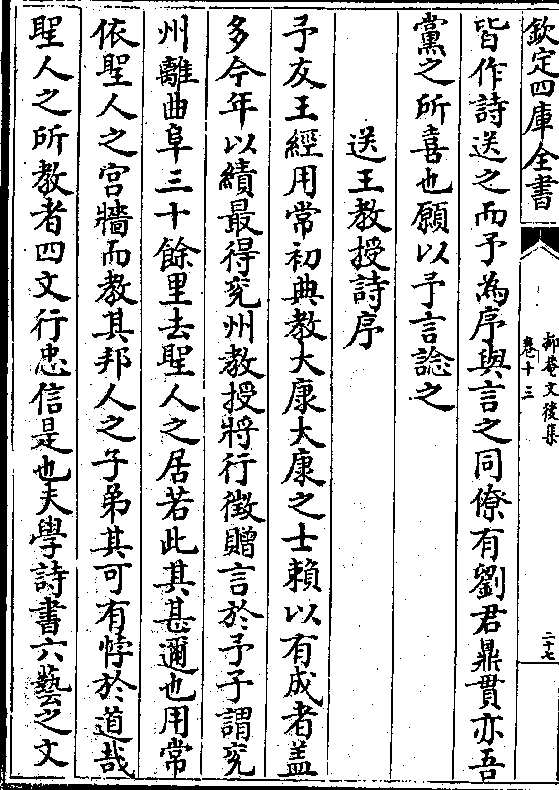 欽定四庫全書
抑菴文後集
卷十三
二十七
皆作詩送之而予為序與言之同僚有劉君鼎貫亦吾
黨之所喜也願以予言諗之
送王教授詩序
予友王經用常初典教大康大康之士賴以有成者盖
多今年以績最得兖州教授將行徵贈言於予予謂兖
州離曲阜三十餘里去聖人之居若此其甚邇也用常
依聖人之宮牆而教其邦人之子弟其可有悖於道哉
聖人之所教者四文行忠信是也夫學詩書六藝之文